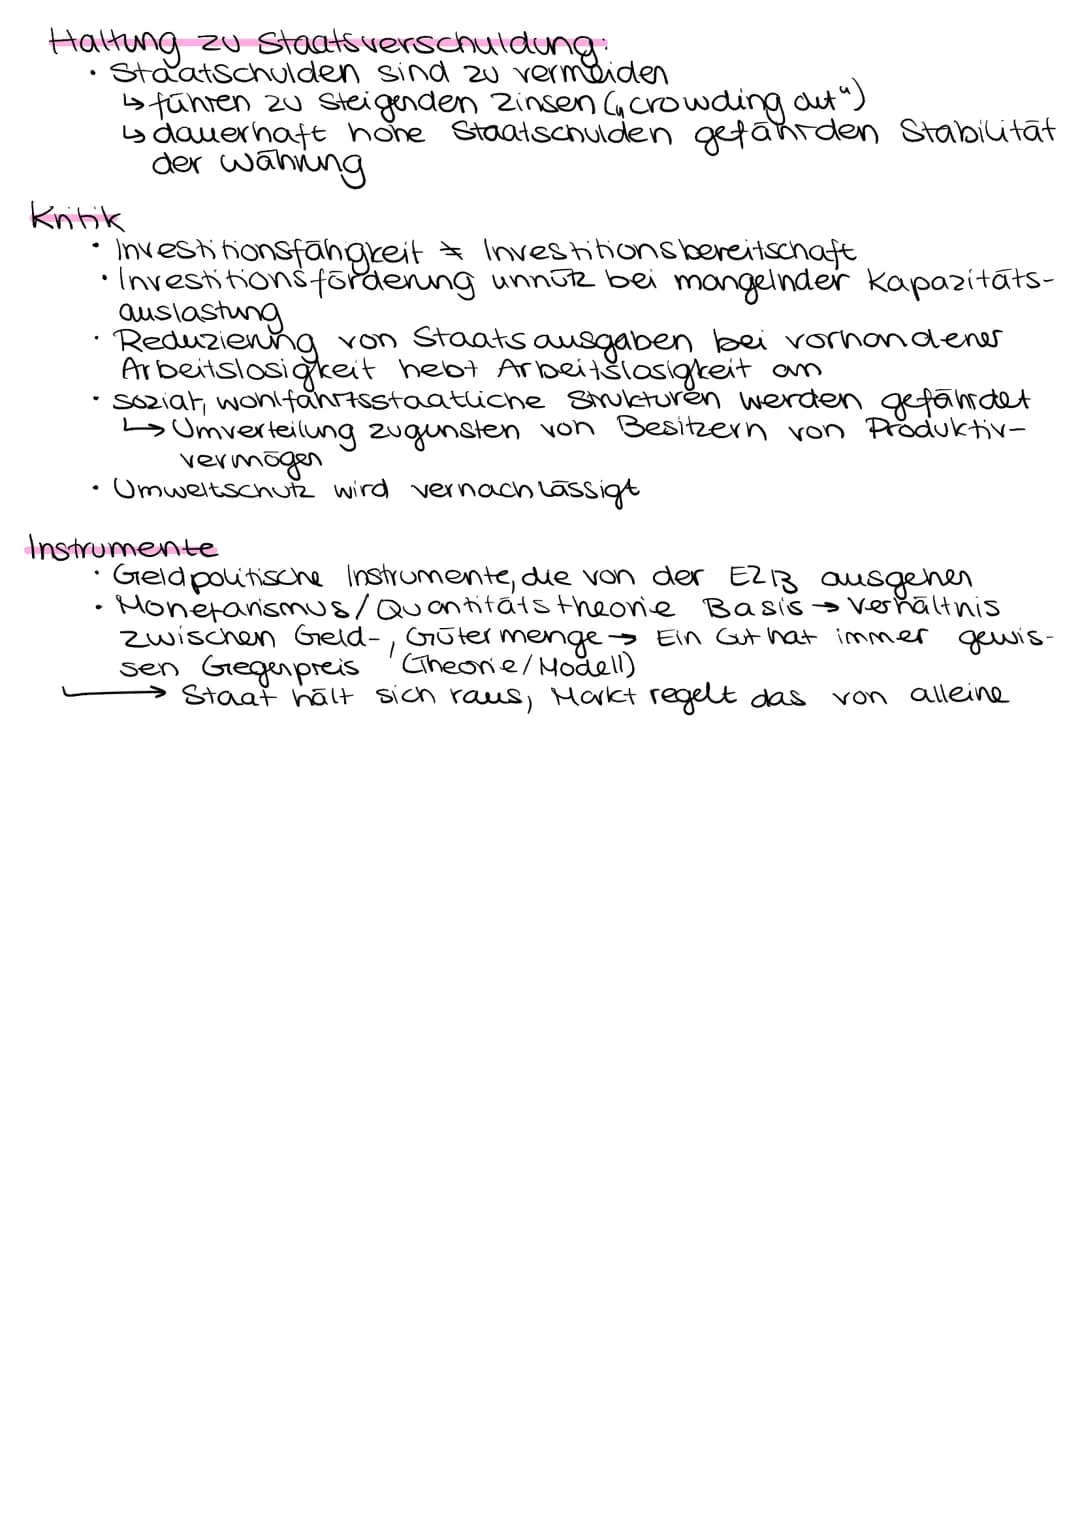 Haltung zu Staatsverschuldung:
· Staatschulden sind zu vermeiden
↳ führen zu steigenden Zinsen („crowding out“)
↳ dauerhaft hohe Staatschulden gefährden Stabilität
der Währung
Kritik
· Investitionsfähigkeit ≠ Investitionsbereitschaft
· Investitionsförderung unnütz bei mangelnder Kapazitäts-
auslastung
· Reduzierung von Staatsausgaben bei vorhandener
Arbeitslosigkeit hebt Arbeitslosigkeit an
· sozial, wohlfahrtsstaatliche Strukturen werden gefährdet
↳ Umverteilung zugunsten von Besitzern von Produktiv-
vermögen
· Umweltschutz wird vernachlässigt
Instrumente
· Geldpolitische Instrumente, die von der EZB ausgehen
· Monetarismus/Quantitätstheorie Basis → Verhältnis
zwischen Geld-, Gütermenge → Ein Gut hat immer gewis-
sen Gegenpreis (Theorie/Modell)
↳ Staat hält sich raus, Markt regelt das von alleine